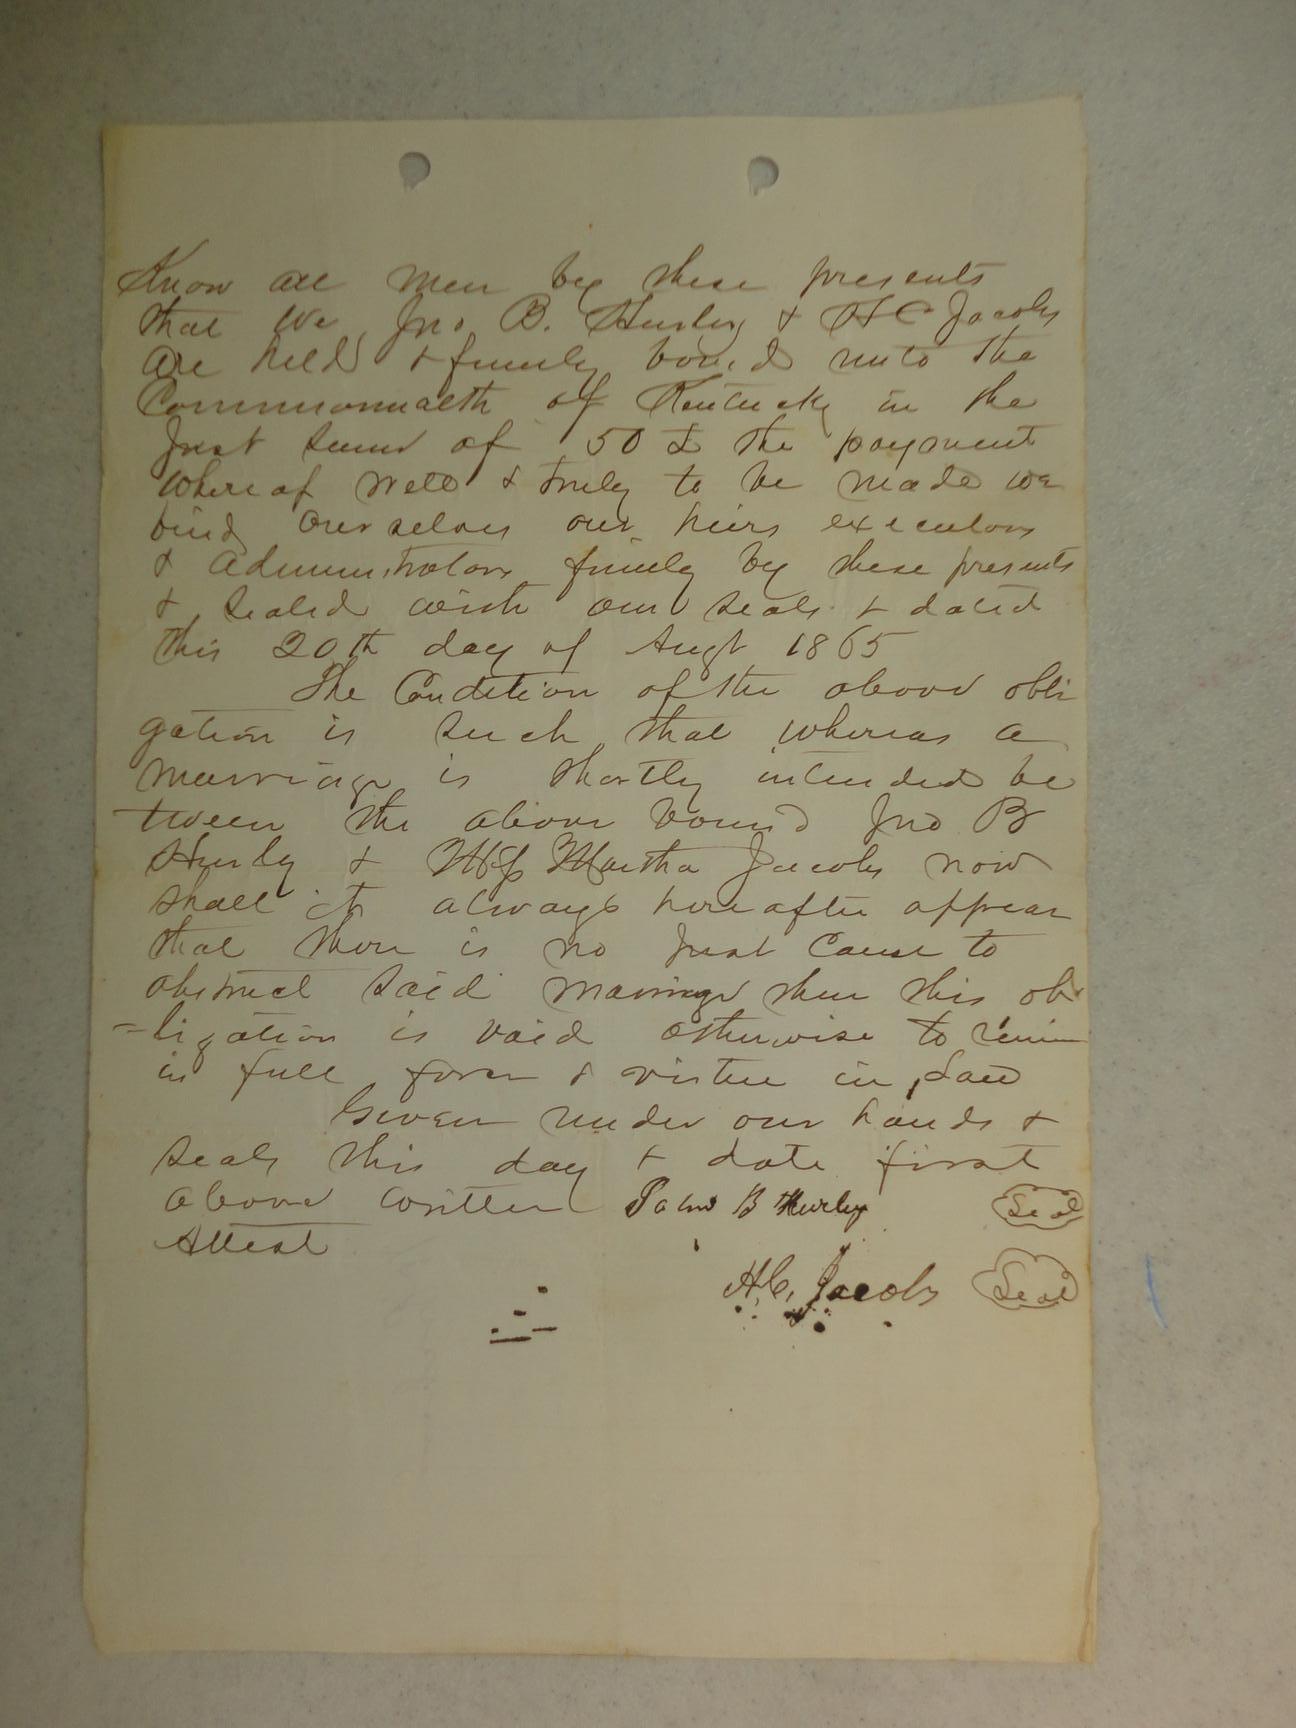 Know all men by these presents
that we Jno B. Hurley & H C Jacobs
are held & firmly bound unto the
Commonwealth of Kentucky in the
Just sum of 50 £ the payment
whereof well & truly to be made we
bind ourselves our heirs executors
& Administrators firmly by these presents
& sealed with our seals & dated
this 20th day of Augt 1865
The Condition of the above obli
gation is such that whereas a
marriage is shortly intended be
tween the above bound Jno B
Hurley & Miss Martha Jacobs now
shall it always hereafter appear
that there is no just cause to
obstruct said marriage then this ob
=ligation is void otherwise to remain
in full force & virtue in Law
Given under our hands &
seals this day & date first
above written John B Hurley Seal
Attest
H.C. Jacobs Seal